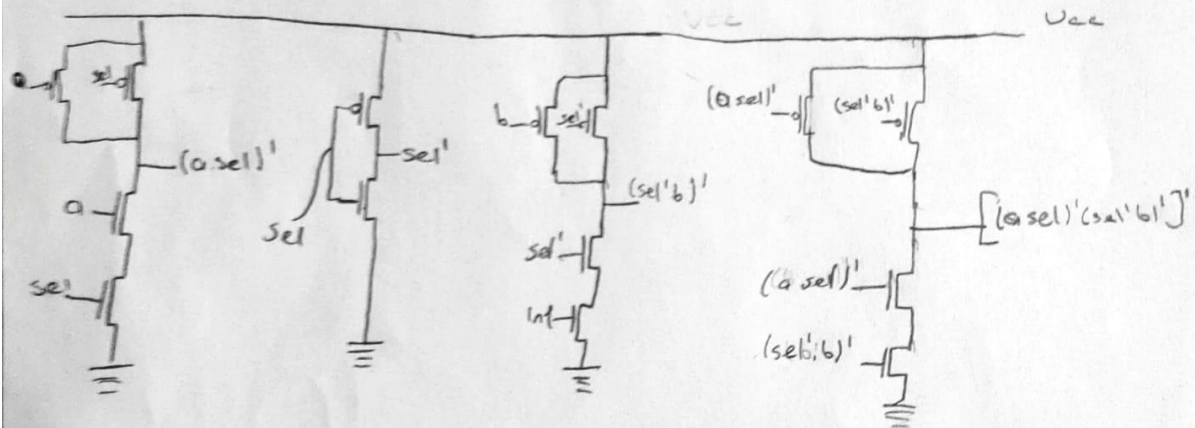 Vcc
Vcc
a
sel
(a.sel)'
a
sel
sel'
sel
b
sel'
(sel'b)'
sel'
In1
(a sel)'
(sel'b)'
[(a sel)'(sel'b)']'
(a sel)'
(sel'b)'